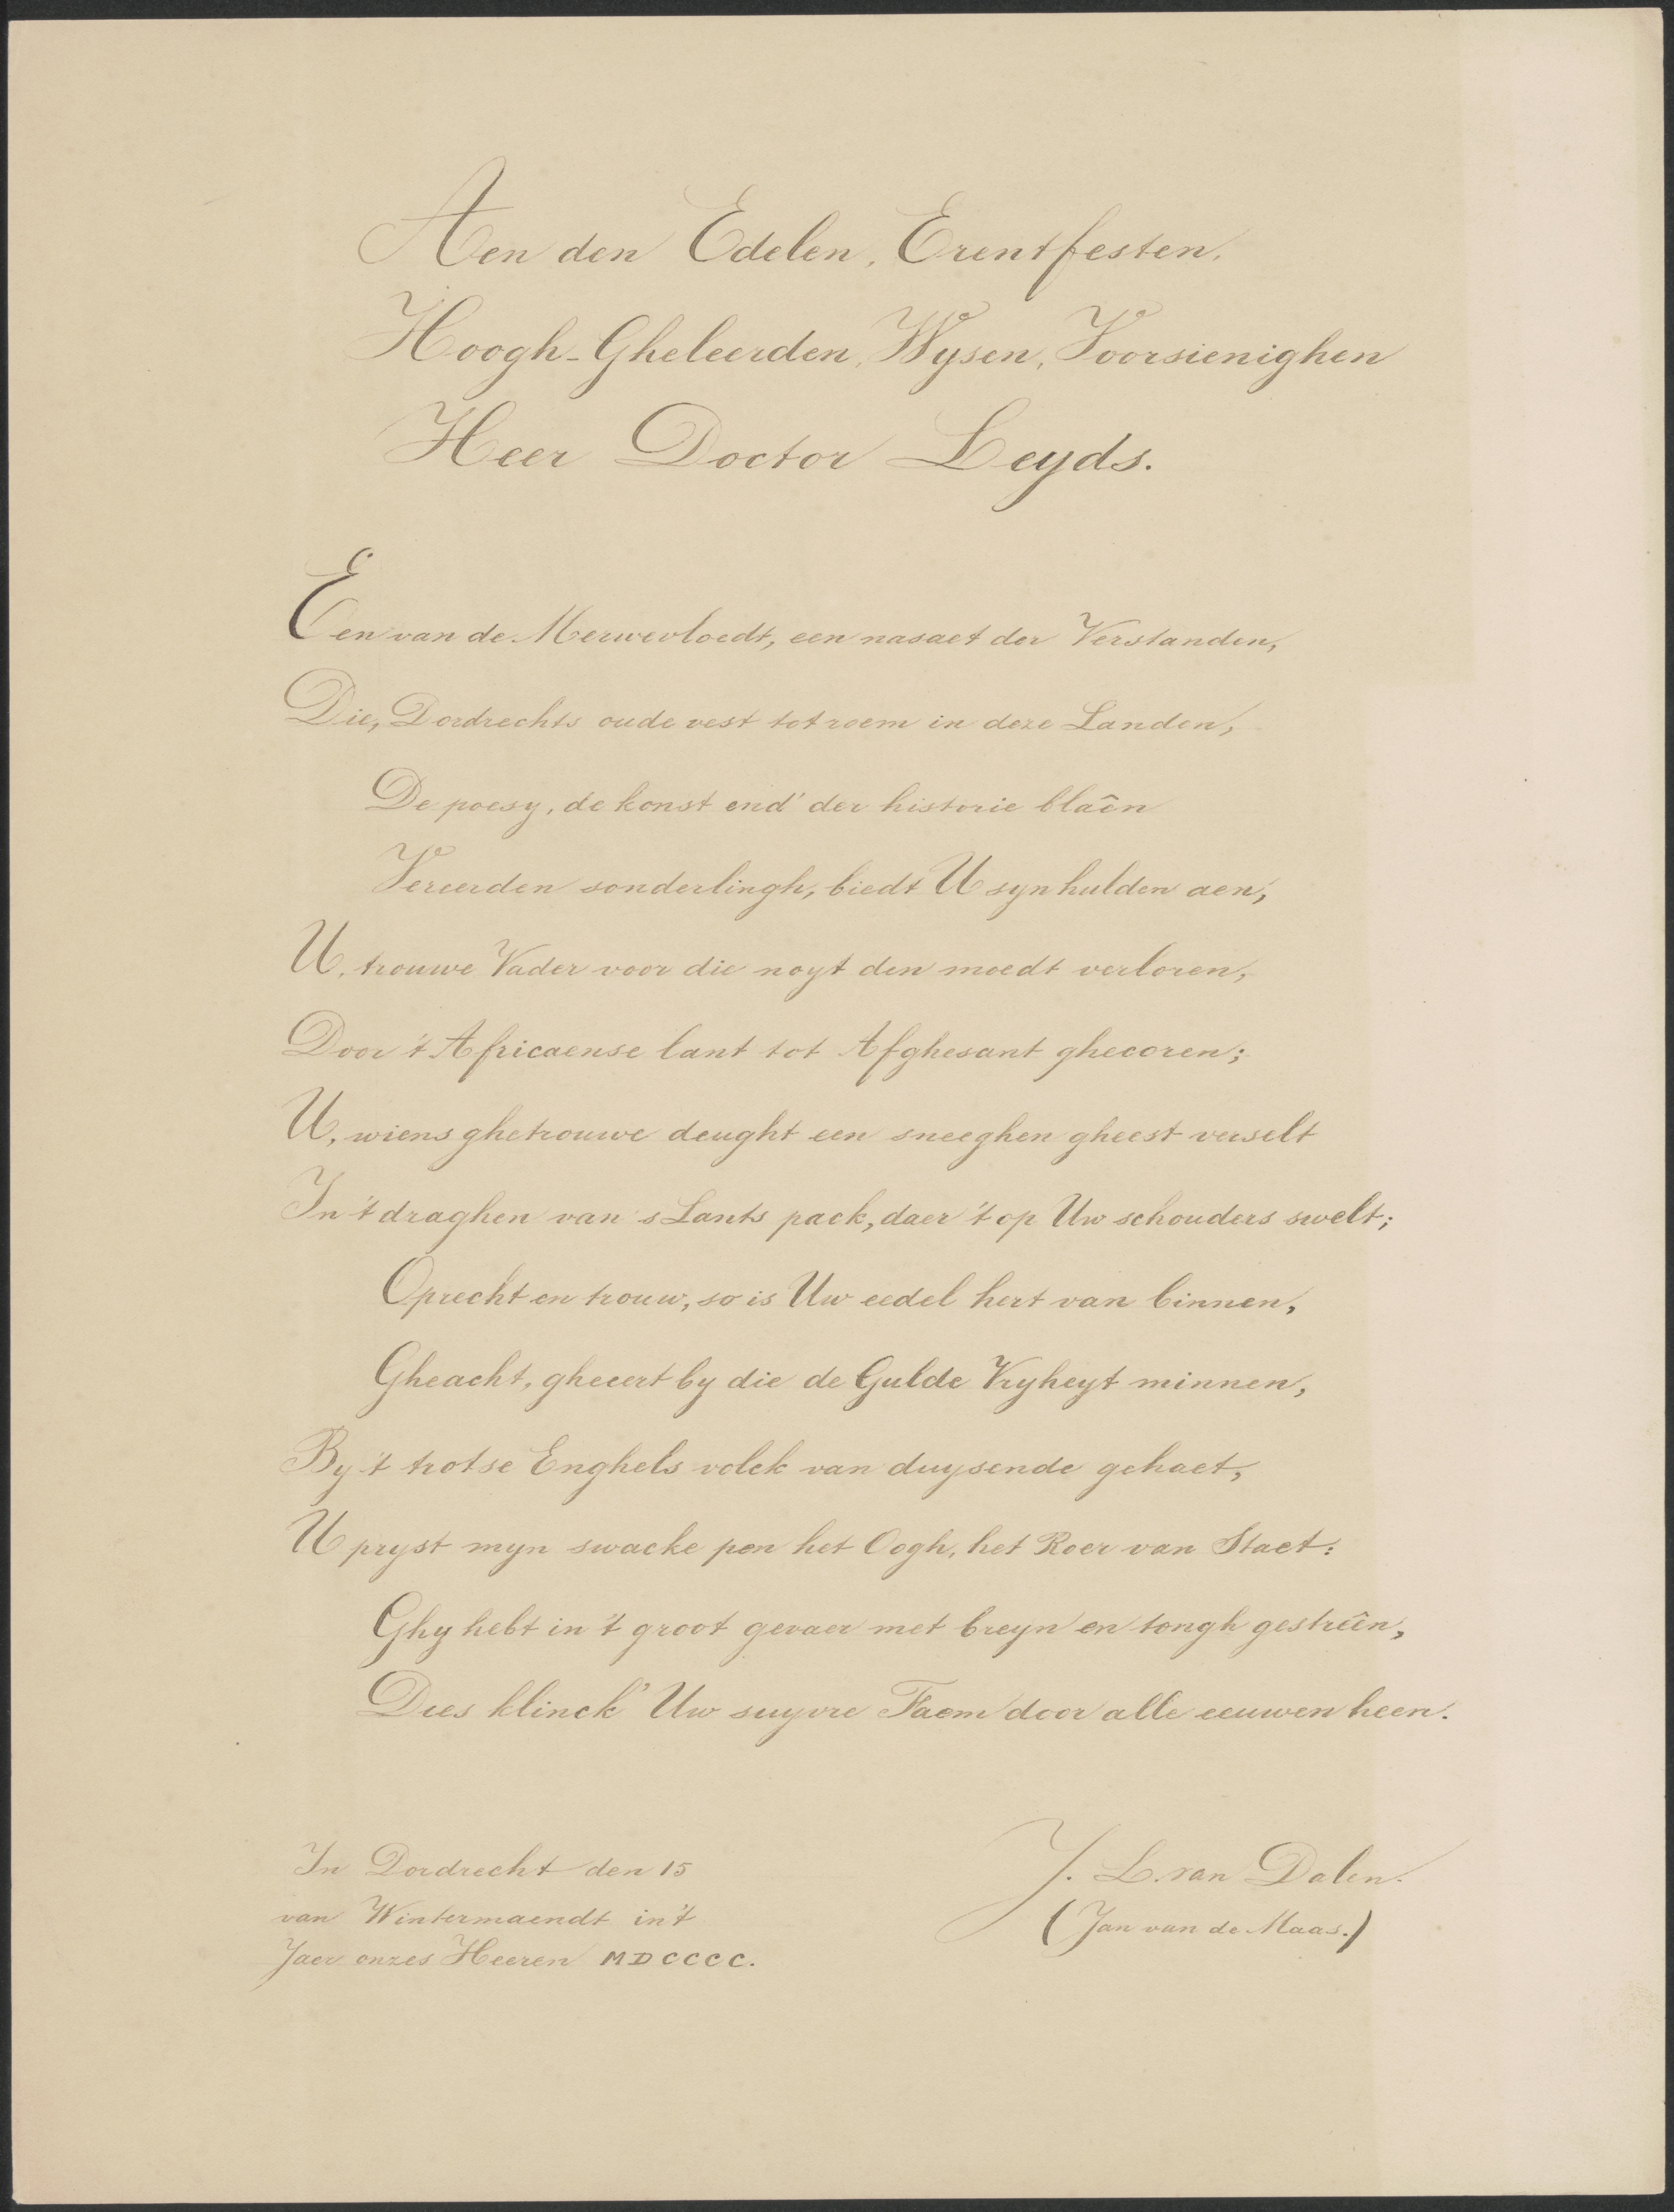 Aen den Edelen, Erentfesten,
Hoogh-Gheleerden, Wysen, Voorsienighen
Heer Doctor Leyds.
Een van de Merwevloedt, een nasaet der Verstanden,
Die, Dordrechts oude vest tot roem in deze Landen,
De poesy, de konst end' der historie blaên
Vereerden sonderlingh, biedt U syn hulden aen;
U, trouwe Vader voor die noyt den moedt verloren,
Door 't Africaense lant tot Afghesant ghecoren;
U, wiens ghetrouwe deught een sneeghen gheest verselt
In 't draghen van 's Lants pack, daer 't op Uw schouders swelt;
Oprecht en trouw, so is Uw eedel hert van binnen,
Gheacht, gheeert by die de Gulde Vryheyt minnen,
By 't trotse Enghels volck van duysende gehaet,
U pryst myn swacke pen het Oogh, het Roer van Staet:
Ghy hebt in 't groot gevaer met breyn en tongh gestreên,
Dies klinck' Uw suyvre Faem door alle eeuwen heen.
In Dordrecht den 15
van Wintermaendt in't
Jaer onzes Heeren MDCCCC.
J. L. van Dalen.
(Jan van de Maas.)